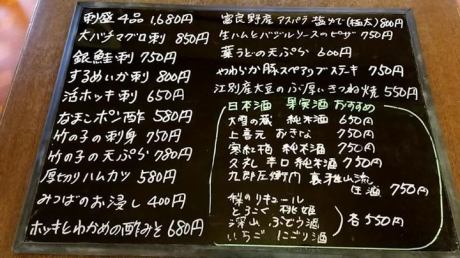 刺盛 4品 1,680円
大バチマグロ刺 850円
銀鮭刺 750円
するめいか刺 800円
活ホッキ刺 650円
なまこポン酢 580円
竹の子の刺身 750円
竹の子の天ぷら 780円
厚切りハムカツ 580円
みつばのお浸し 400円
ホッキとわかめの酢みそ 680円
富良野産アスパラ 塩ゆで(極太) 800円
生ハムとバジルソースのピザ 750円
葉うどの天ぷら 600円
やわらか豚スペアリブステーキ 750円
江別産大豆のぶ厚いきつね焼 550円
日本酒 果実酒 おすすめ
大雪の蔵 純米酒 650円
上喜元 おきな 750円
寒紅梅 純米酒 750円
久礼 辛口純米酒 750円
九郎左衛門 裏雅山流
生酒 750円
梨のリキュール
とろこく 桃姫
深山 ぶどう酒
いちご にごり酒
各550円